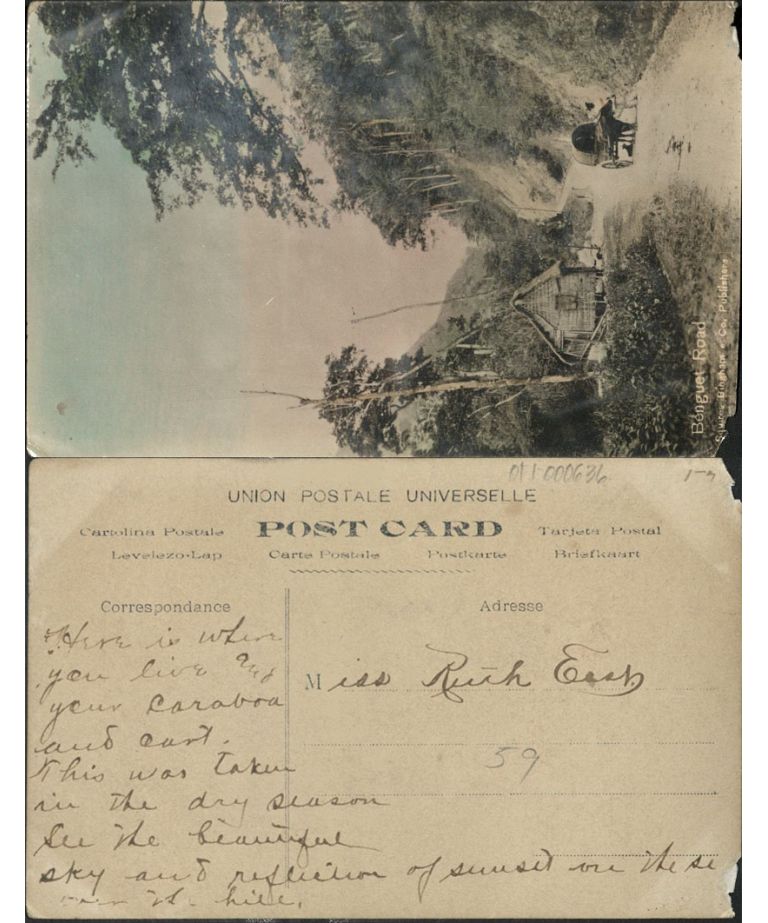 Benguet Road
Squires Bingham & Co., Publishers
011 000636
UNION POSTALE UNIVERSELLE
Cartolina Postale POST CARD Tarjeta Postal
Levelezo-Lap Carte Postale Postkarte Briefkaart
Correspondance Adresse
Here is where
you live
your caraboa
and cart.
This was taken
in the dry season
See the beautiful
sky and reflection of sunset on the
the hill.
Miss Ruth East
59